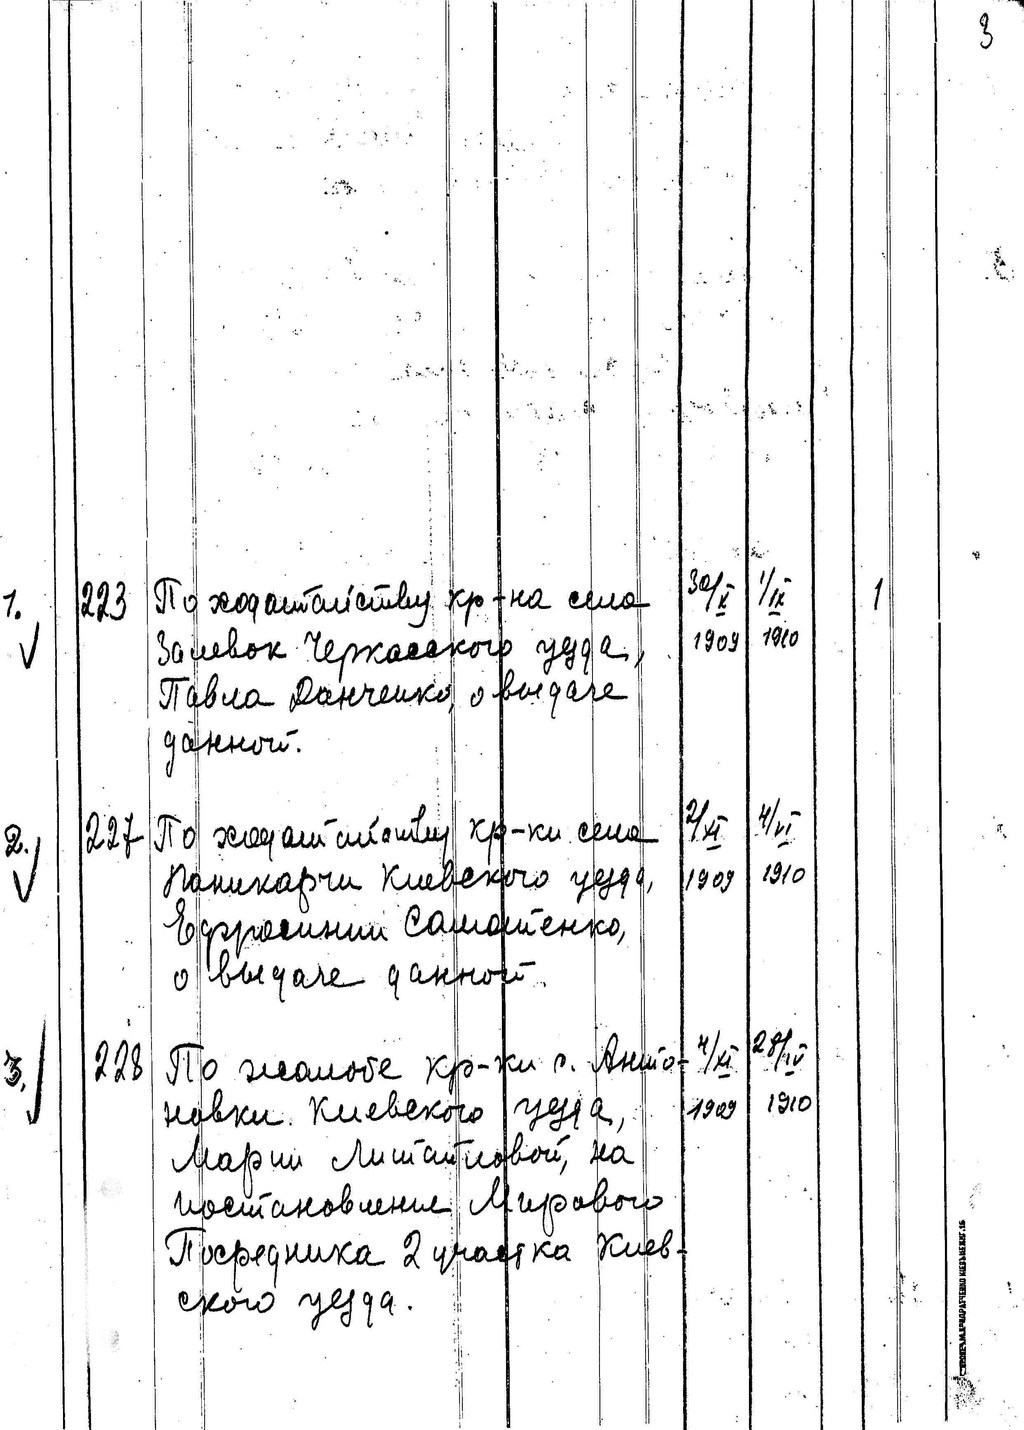 3
1. 223 По ходатайству кр-на села 30/X 1/IX 1
Залевок Черкасского уезда, 1909 1910
Павла Данченко, о выдаче
данной.
2. 227 По ходатайству кр-ки села 2/XI 4/VI
Паникарчи Киевского уезда, 1909 1910
Ефросинии Самотенко,
о выдаче данной.
3. 228 По жалобе кр-ки с. Анто- 4/XI 28/IV
новки Киевского уезда, 1909 1910
Марии, на
постановление Мирового
Посредника 2 участка Киев-
ского уезда.